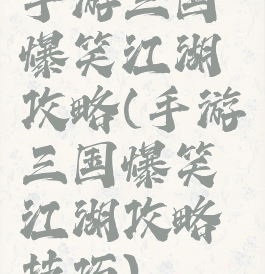 手游三国
爆笑江湖
攻略(手游
三国爆笑
江湖攻略
技巧)